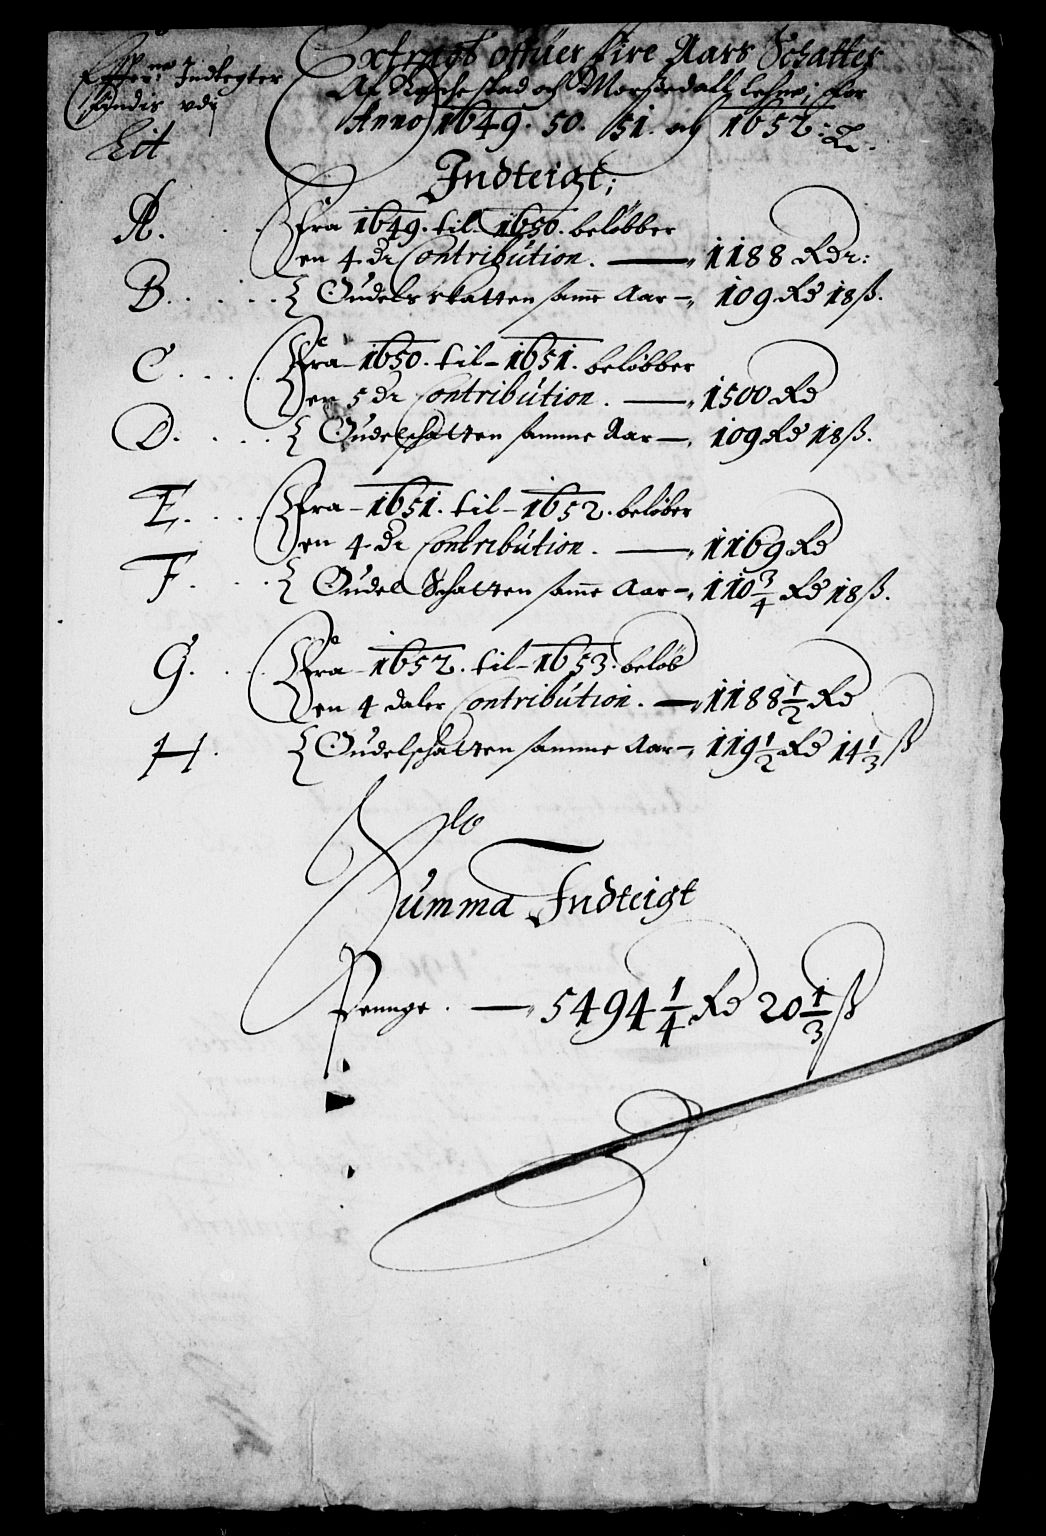 Extragt offuer fire Aars Schatter
Effterne Indtegter
findis vdj
Lit
Af Rosche stad och Morssedall Lehne; for
Anno 1649. 50. 51. och 1652:
Indteigt;
A. Fra 1649. til. 1650. beløbber
en 4 dr Contribution. — 1188 Rdr:
B. Oudels skatten samme Aar — 109 Rd 18 ß.
C. Fra 1650. til 1651. beløbber
en 5 dr Contribution. — 1500 Rd
D. Oudelschatten samme Aar — 109 Rd 18 ß.
E. Fra 1651. til 1652. beløber
en 4 dr Contribution. — 1169 Rd
F. Oudel Schatten samme Aar — 110 3/4 Rd 18 ß.
G. Fra 1652. til 1653. beløb
en 4 daler Contribution. — 1188 1/2 Rd
H. Oudelschatten samme Aar — 119 1/2 Rd 14 1/3 ß
Summa Indteigt
Pennge. — 5494 1/4 Rd 20 1/3 ß